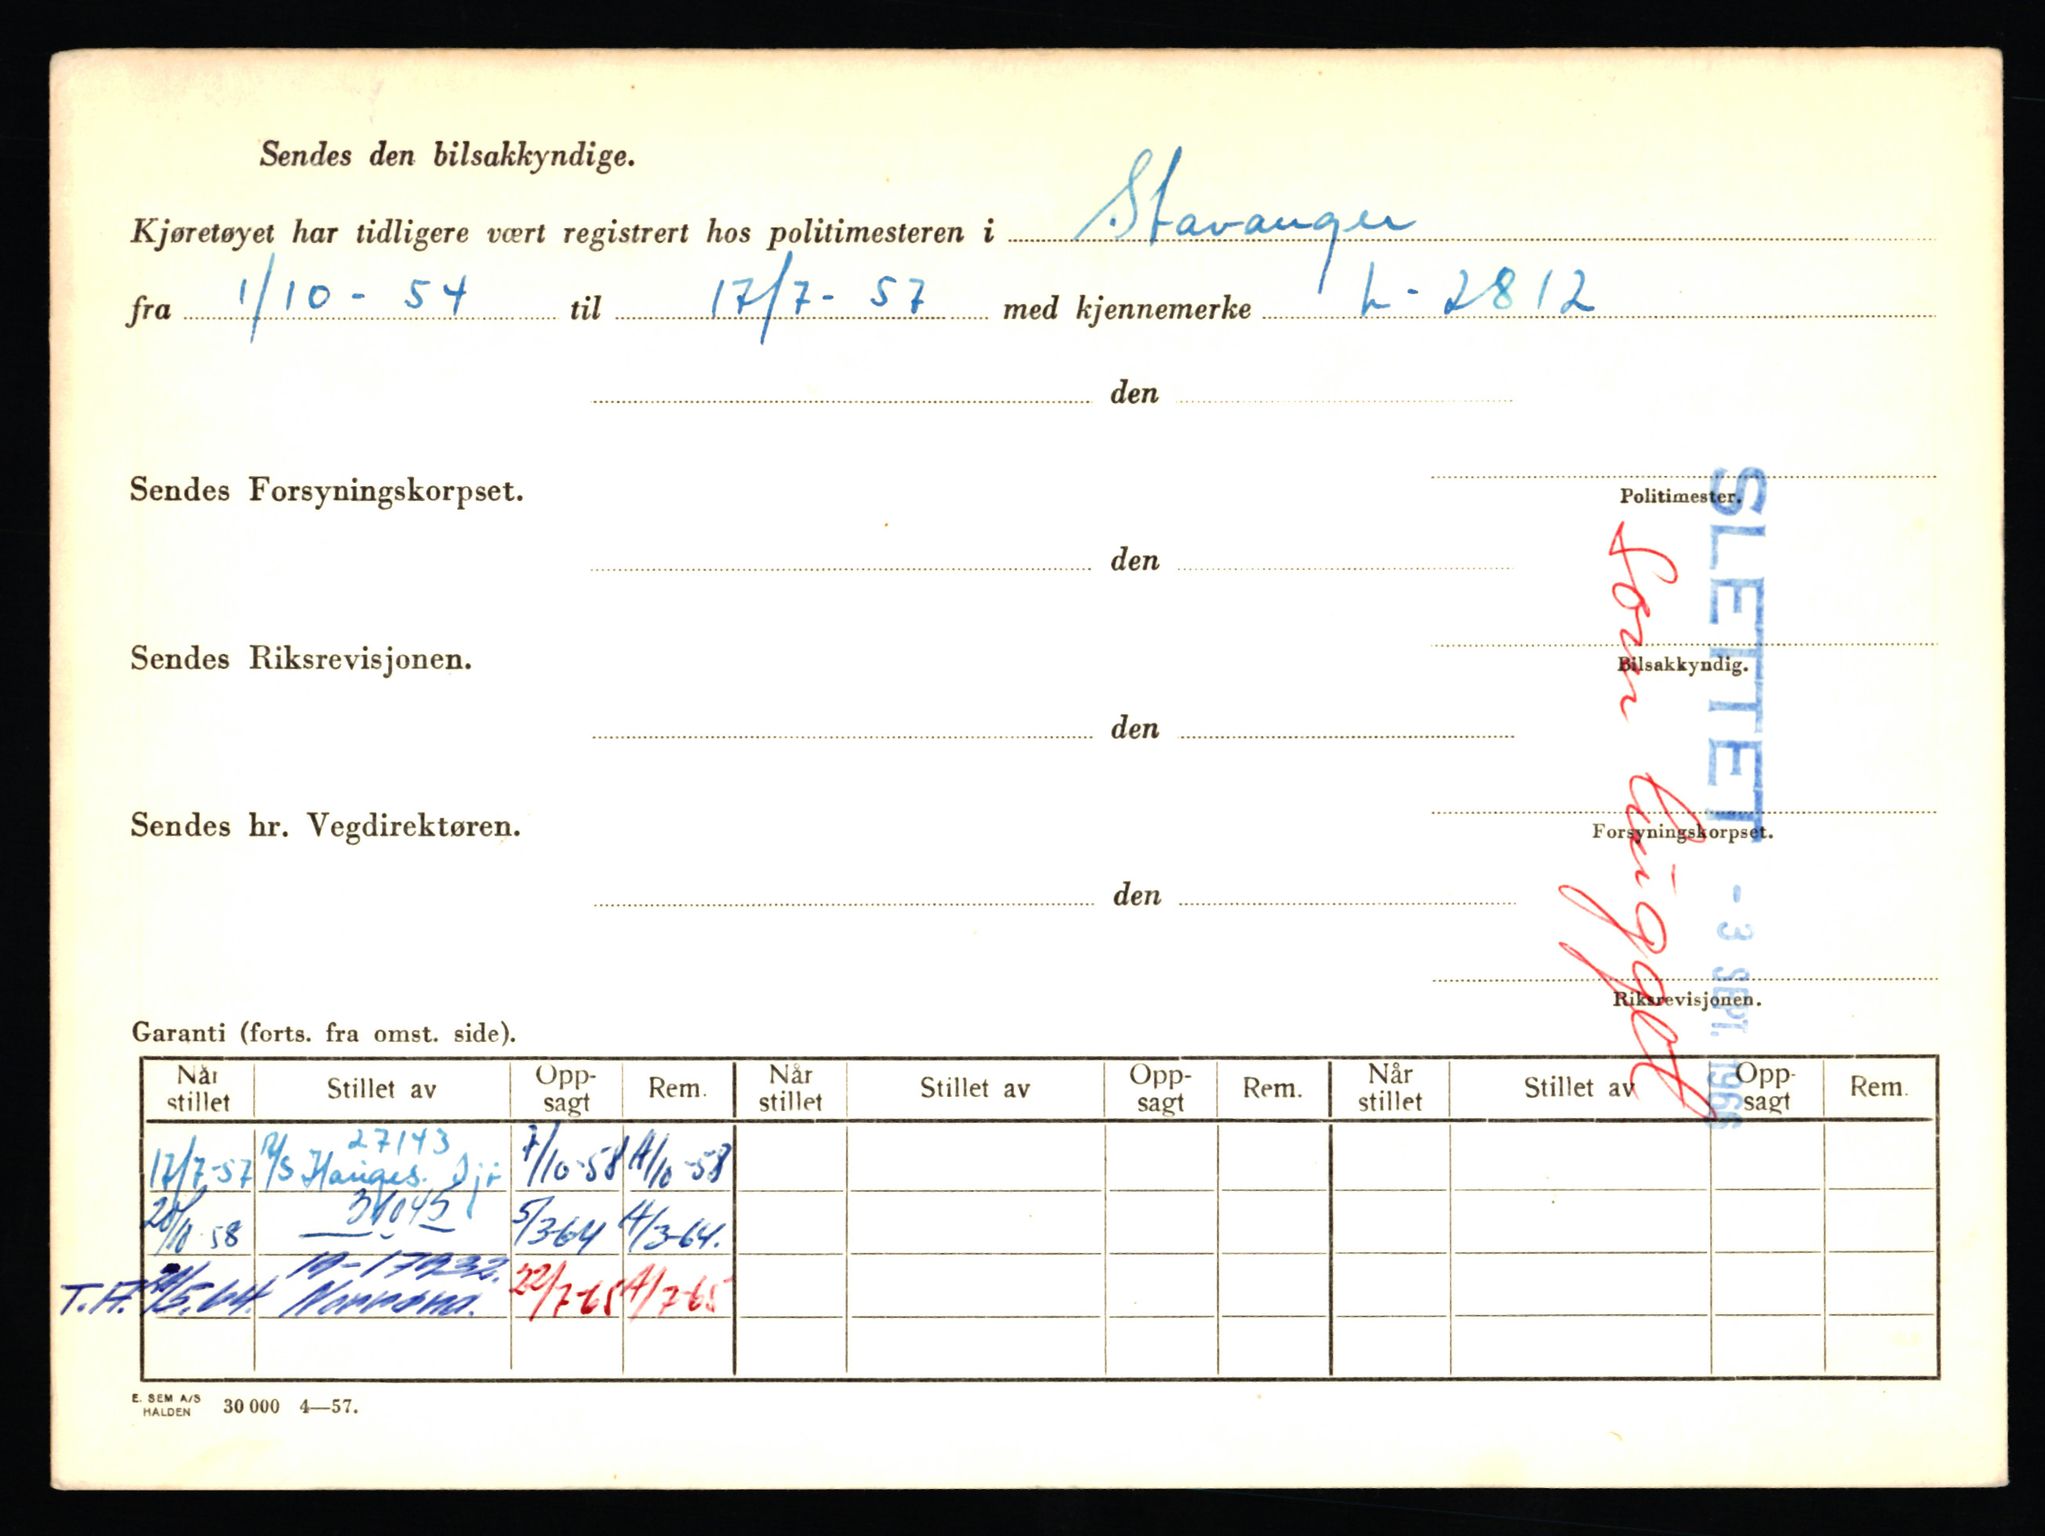 Sendes den bilsakkyndige.
Kjøretøyet har tidligere vært registrert hos politimesteren i Stavanger
fra 1/10 - 54 til 17/7 - 57 med kjennemerke L - 2812
den
Politimester.
Sendes Forsyningskorpset.
den
Bilsakkyndig.
Sendes Riksrevisjonen.
den
Forsyningskorpset.
Sendes hr. Vegdirektøren.
den
Riksrevisjonen.
SLETTET - 3 SEPT. 1966
Som hugget
Garanti (forts. fra omst. side).
Når stillet Stillet av Opp- sagt Rem. Når stillet Stillet av Opp- sagt Rem. Når stillet Stillet av Opp- sagt Rem.
27143
17/7-57 A/S Hauges. 7/10-58 A/10-58
20/10-58 31045 5/3-64 A/3-64.
19-17932.
T.A. /5.64. Norrøna. 22/7-65 A/7-65
E. SEM A/S
HALDEN 30 000 4—57.